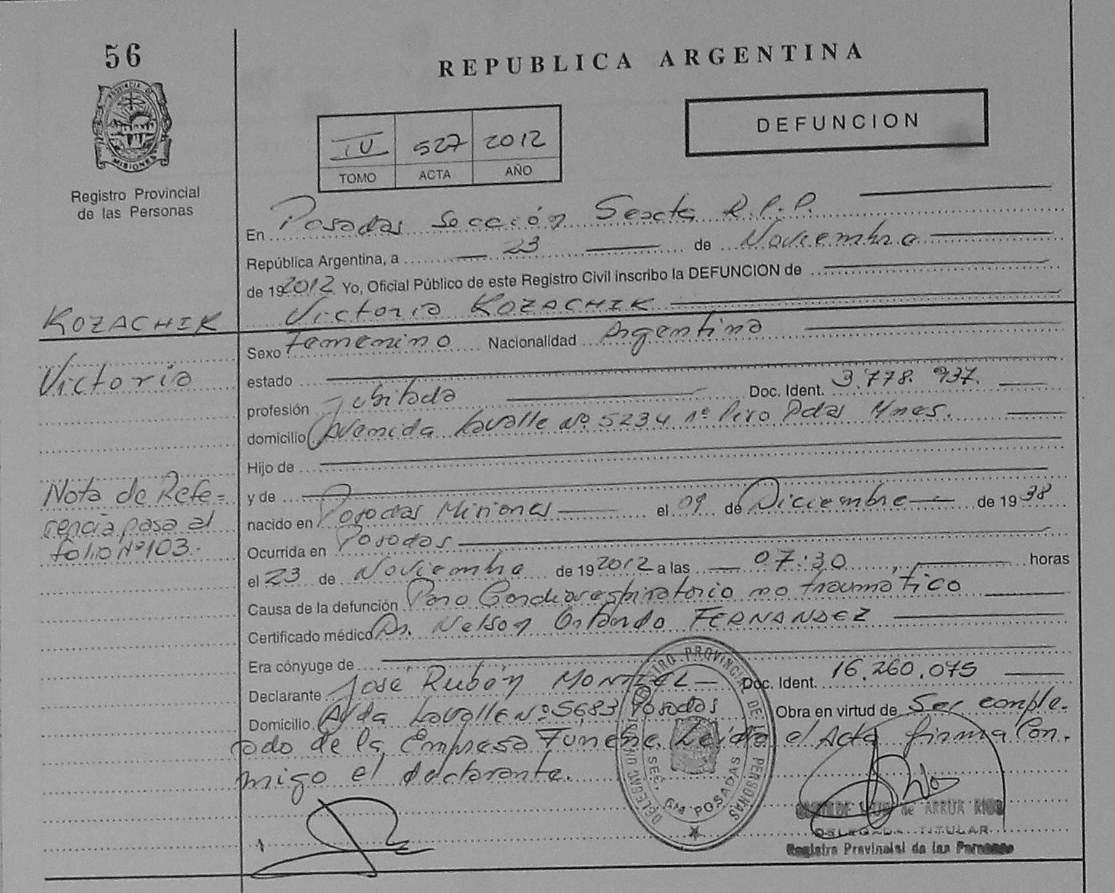 56
REPUBLICA ARGENTINA
PROVINCIA DE MISIONES
Registro Provincial
de las Personas
IV 527 2012
TOMO ACTA AÑO
DEFUNCION
En Posadas Sección Sexta R.P.P.
República Argentina, a 23 de Noviembre
de 192012 Yo, Oficial Público de este Registro Civil inscribo la DEFUNCION de
Victoria KOZACHIK
KOZACHIK
Victoria
Nota de Refe-
rencia pasa al
folio Nº103.
Sexo Femenino Nacionalidad Argentina
estado
profesión Jubilada Doc. Ident. 3.778.937.
domicilio Avenida Lavalle Nº 5234 1º Piso Pdas Mnes.
Hijo de
y de
nacido en Posadas Misiones el 09 de Diciembre de 1938
Ocurrida en Posadas
el 23 de Noviembre de 192012 a las 07:30, horas
Causa de la defunción Paro Cardiorespiratorio no traumático
Certificado médico Dr. Nelson Orlando FERNANDEZ
Era cónyuge de
Declarante José Rubén Doc. Ident. 16.260.075
Domicilio Avda Lavalle Nº5683 Posadas Obra en virtud de Ser emple-
ado de la Empresa Leída el Acta firma Con-
migo el declarante.
REGISTRO PROVINCIAL DE LAS PERSONAS
SEC. 6ta POSADAS
de ARRUA
DELEGADA TITULAR
Registro Provincial de las Personas